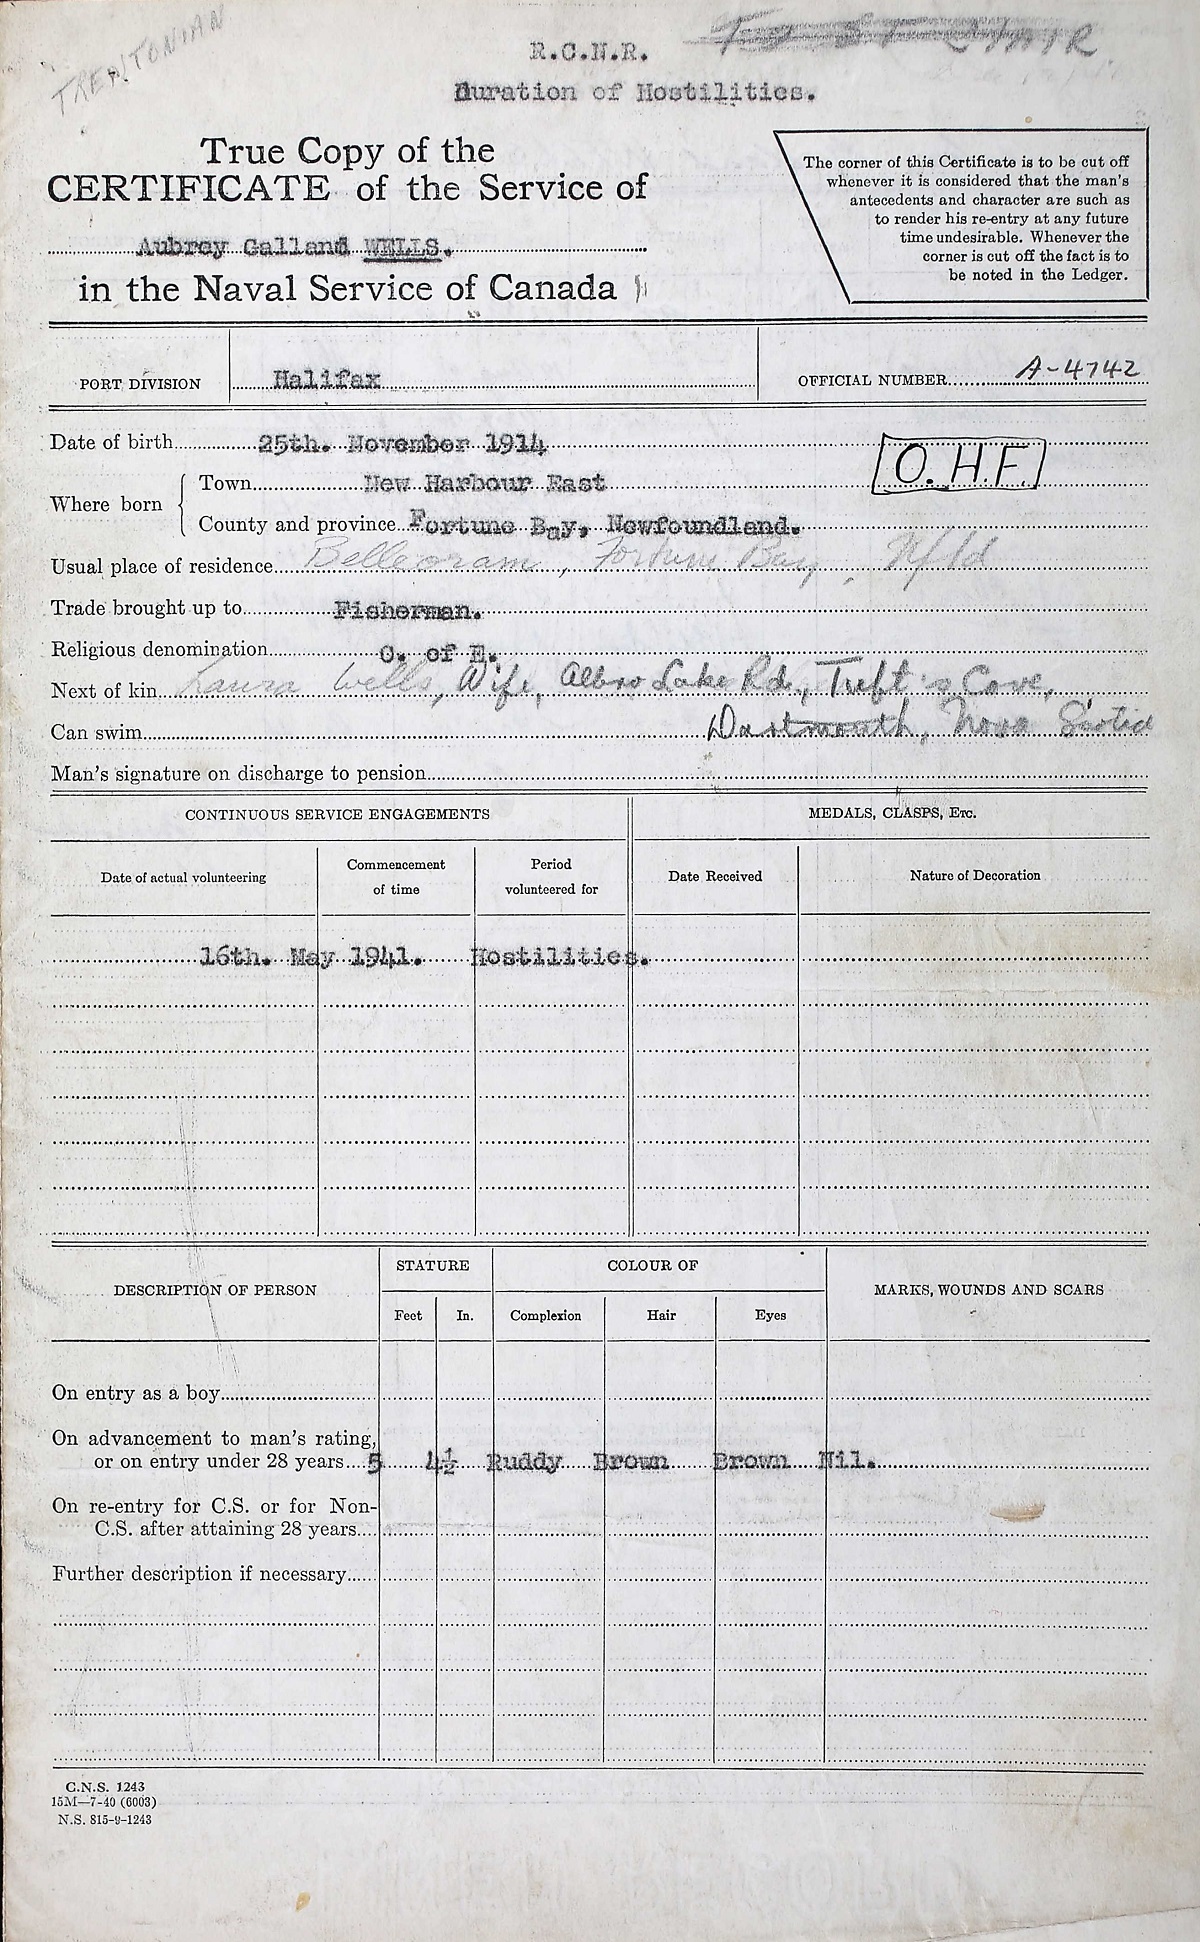 TRENTONIAN
R.C.N.R.
Duration of Hostilities.
True Copy of the
CERTIFICATE of the Service of
Aubrey Galland WELLS.
in the Naval Service of Canada
The corner of this Certificate is to be cut off
whenever it is considered that the man's
antecedents and character are such as
to render his re-entry at any future
time undesirable. Whenever the
corner is cut off the fact is to
be noted in the Ledger.
PORT DIVISION Halifax OFFICIAL NUMBER A-4742
Date of birth 25th. November 1914
O.H.F.
Where born
Town New Harbour East
County and province Fortune Bay, Newfoundland.
Usual place of residence Belleoram, Fortune Bay, Nfld
Trade brought up to Fisherman.
Religious denomination C. of E.
Next of kin Laura Wells, Wife, Albro Lake Rd., Tuft's Cove,
Can swim Dartmouth, Nova Scotia
Man's signature on discharge to pension
CONTINUOUS SERVICE ENGAGEMENTS MEDALS, CLASPS, ETC.
Date of actual volunteering Commencement of time Period volunteered for Date Received Nature of Decoration
16th. May 1941. Hostilities.
DESCRIPTION OF PERSON STATURE COLOUR OF MARKS, WOUNDS AND SCARS
Feet In. Complexion Hair Eyes
On entry as a boy
On advancement to man's rating,
or on entry under 28 years 5 4½ Ruddy Brown Brown Nil.
On re-entry for C.S. or for Non-
C.S. after attaining 28 years
Further description if necessary
C.N.S. 1243
15M—7-40 (6003)
N.S. 815-9-1243